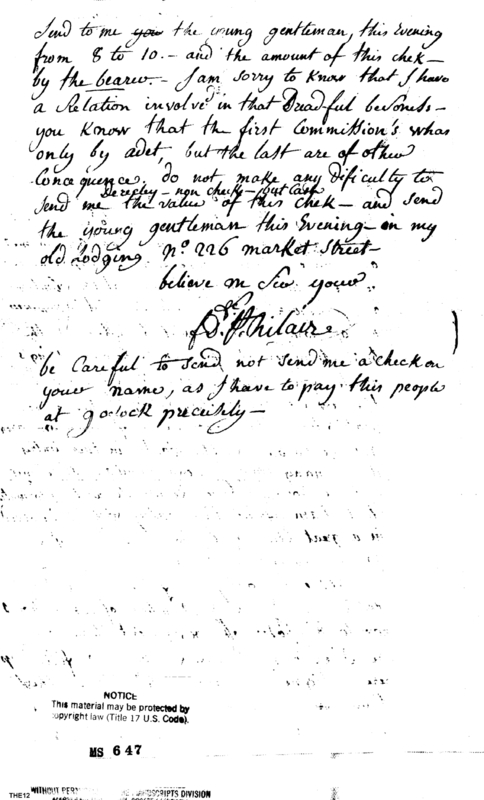 Send to me you the young gentleman, this Evening
from 8 to 10. - and the amount of this chek -
by the bearer. - I am sorry to know that I have
a Relation involved in that Dreadful besoness -
you Know that the first Commission's whas
only by adet, but the last are of other
Concequence. do not make any dificulty to
Deregley - non cheks - but Cash
send me the value of this chek - and send
the young gentleman this Evening - in my
old lodging No 226 market Street -
believe m Sir your
St. hilaire.
be Careful to send not send me a check on
your name, as I have to pay this people
at 9 o'clock precisely -
NOTICE
This material may be protected by
copyright law (Title 17 U.S. Code).
MS 647
THE12 WITHOUT PERM
MANUSCRIPTS DIVISION